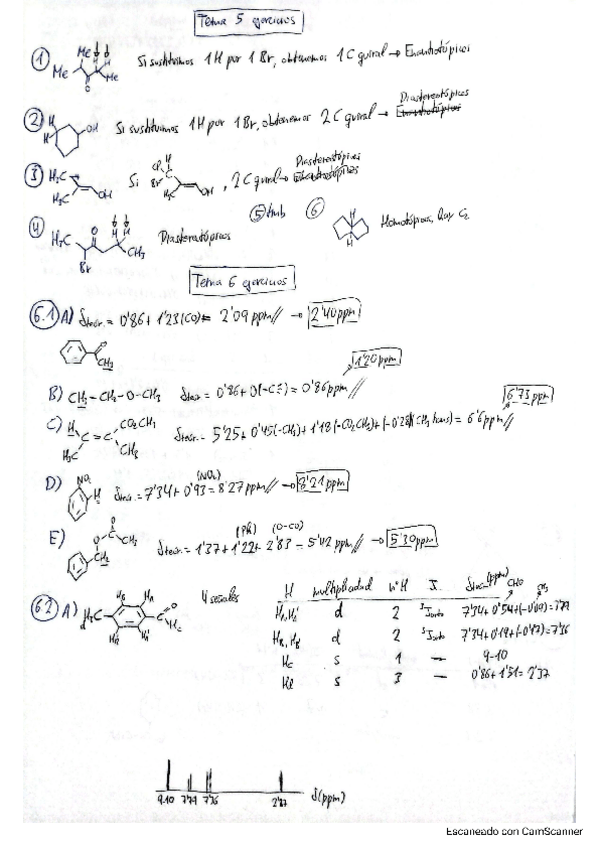 Tema 5 ejercicios
① Me Me Me O Si sustituimos 1H por 1Br, obtenemos 1C quiral → Enantiotópicos
② H H OH Si sustituimos 1H por 1Br, obtenemos 2C quiral → Diastereotópicos
③ H₃C H₃C OH Si H Br H₃C OH, 2C quiral → Diastereotópicos
④ H₃C O Br H H CH₃ Diastereotópicos ⑤ ⑥ H H Homotópicos, hay C₂
Tema 6 ejercicios
6.1 A) δteor. = 0'86 + 1'23 (CO) = 2'09 ppm// → 2'40 ppm
CH₃
1'20 ppm
B) CH₃-CH₂-O-CH₃ δteor. = 0'86 + 0 = 0'86 ppm//
6'73 ppm
C) H H₃C C = C CO₂CH₃ CH₃ δteor. = 5'25 + 0'45 (-CH₃) + 1'18 (-CO₂CH₃) + (-0'28) (CH₃ trans) = 6'6 ppm//
D) NO₂ H δteor. = 7'34 + 0'93 (NO₂) = 8'27 ppm// → 8'21 ppm
E) O O CH₃ CH₂ δteor. = 1'37 + 1'22 (Ph) + 2'83 (O-CO) = 5'42 ppm// → 5'30 ppm
6.2 A) 4 señales
H multiplicidad nº H J δteor. (ppm) CHO CH₃
d 2 ³Jorto 7'34 + 0'54 +
d 2 ³Jorto 7'34 + 0'19 +
Hc s 1 — 9-10
Hd s 3 — 0'86 + 1'51 = 2'37
9-10 7'36 2'37 δ(ppm)
Escaneado con CamScanner